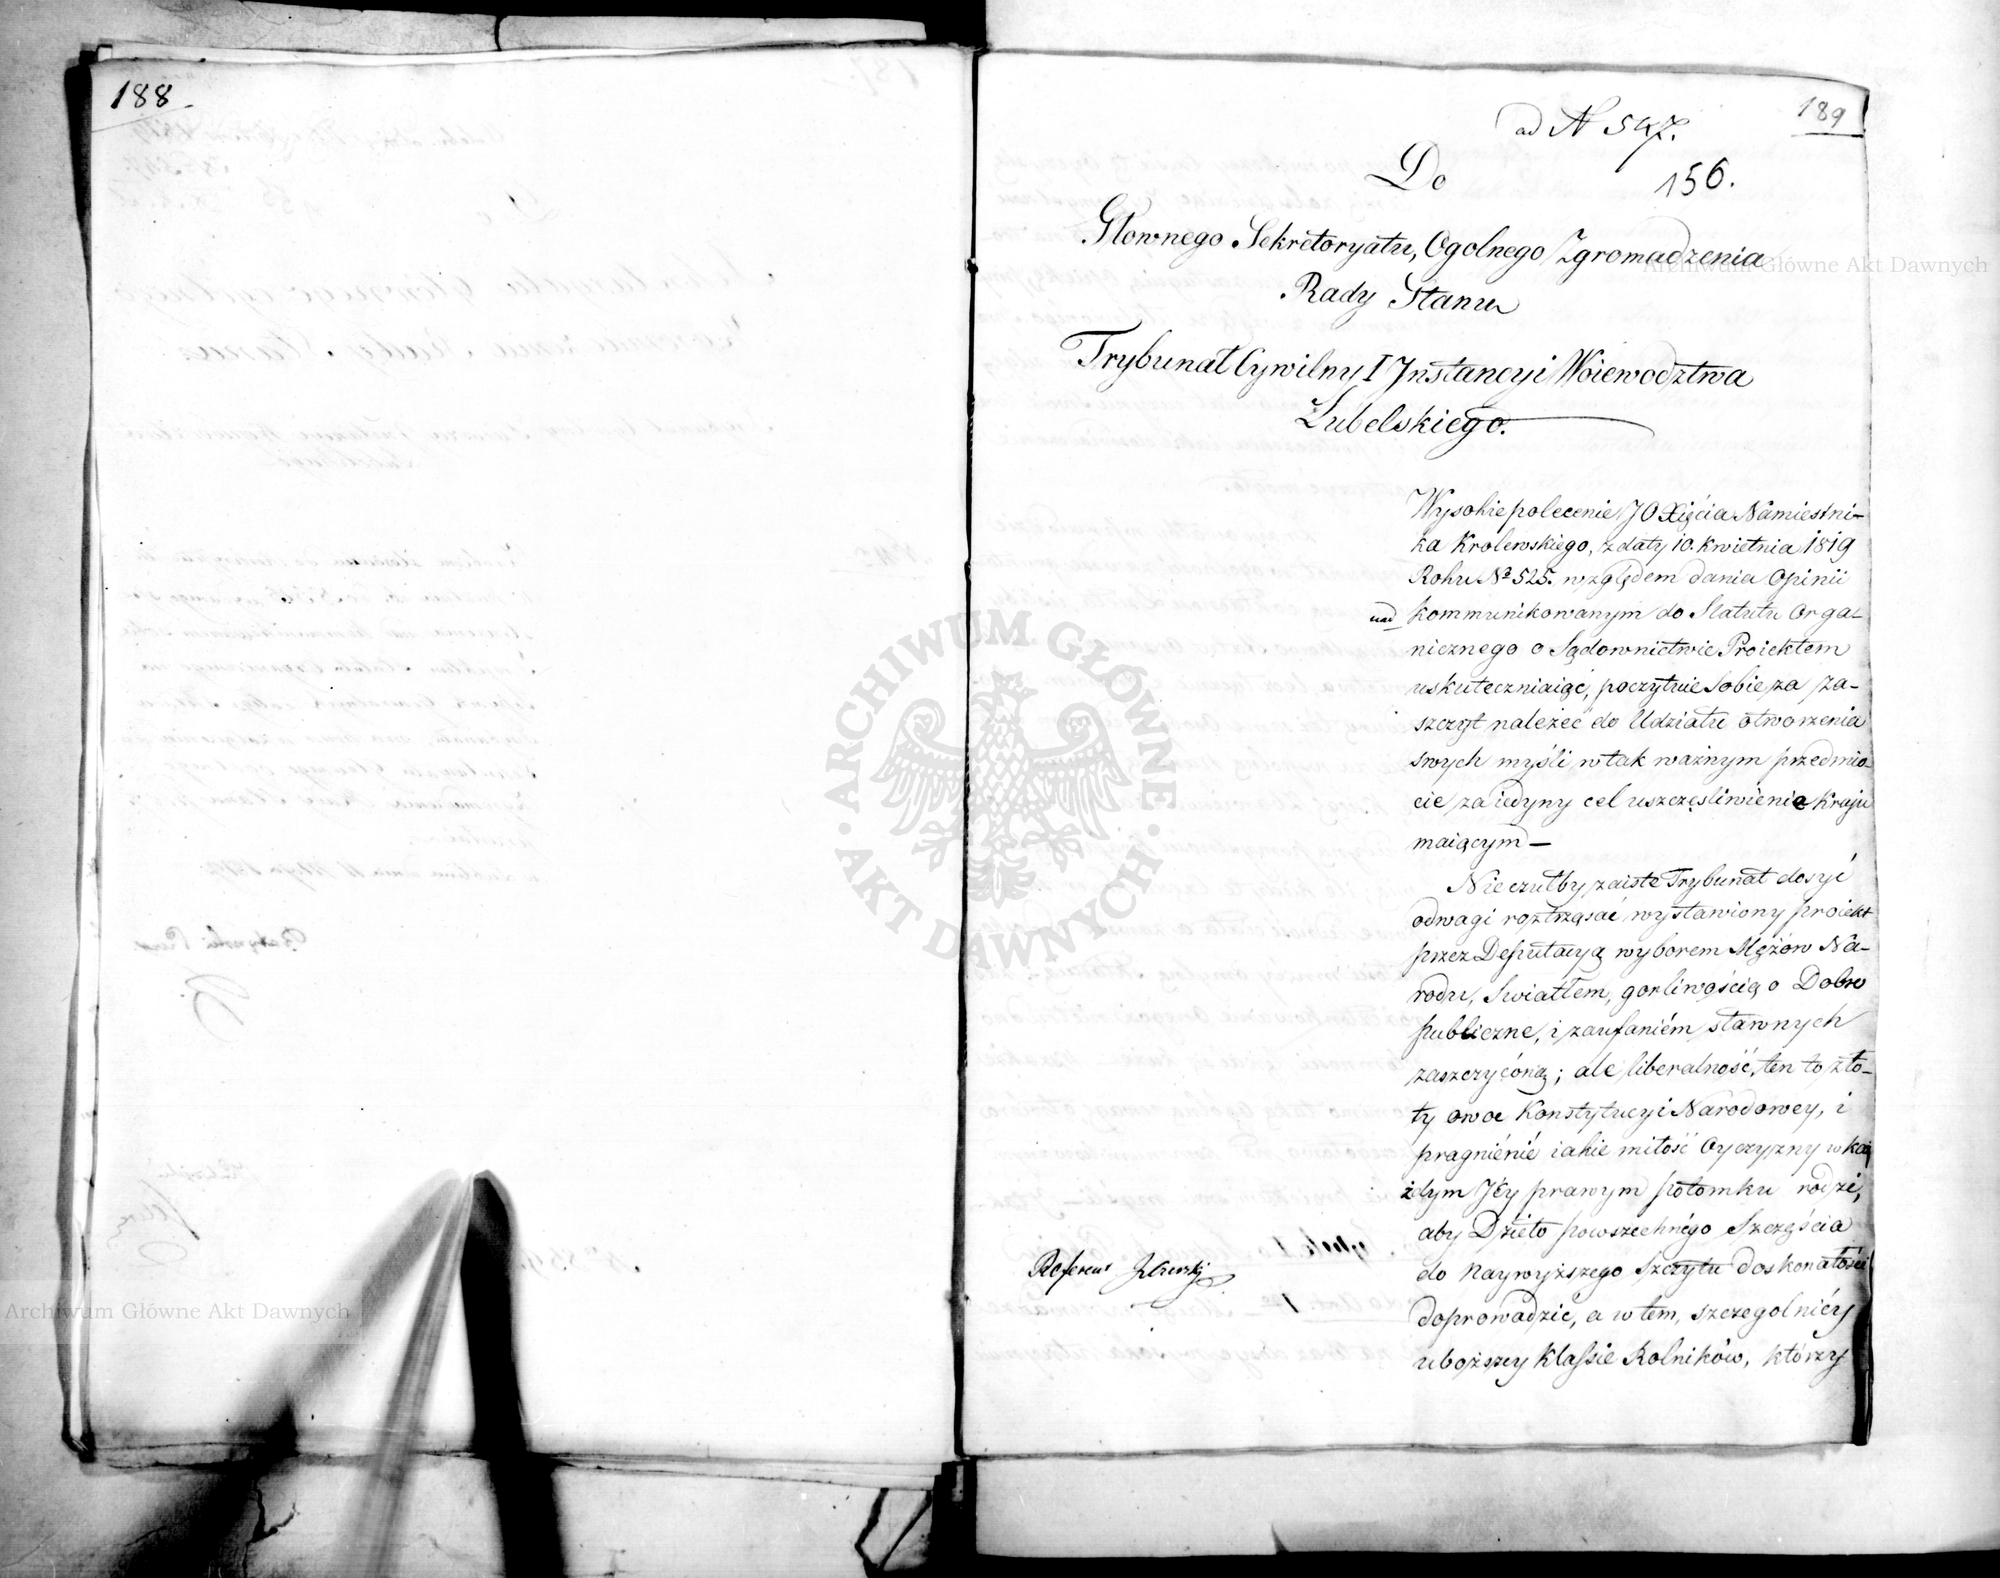 188
189
ad N 547.
Do
156.
Głownego Sekretoryatu, Ogolnego Zgromadzenia
Rady Stanu
Trybunał Cywilny I Jnstancyi Woiewodztwa
Lubelskiego.
Wysokie polecenie JO Xięcia Namiestni-
ka Krolewskiego, z daty 10. Kwietnia 1819
Roku No 525. względem dania Opinii
nad kommunikowanym do Statutu Orga-
nicznego o Sądownictwie Proiektem
uskuteczniaiąc, poczytuie Sobie za za-
szczyt należeć do Udziału otworzenia
swych myśli w tak ważnym przedmio-
cie za iedyny cel uszczęsliwienie Kraju
maiącym—
Nie czułby zaiste Trybunał dosyć
odwagi roztrząsać wystawiony proiekt
przez Deputacyą wyborem Mężow Na-
rodu, Swiatłem, gorliwością o Dobro
publiczne, i zaufaniém sławnych
zaszczyconą; ale liberalność, ten to zło-
ty owoc Konstytucyi Narodowey, i
pragniénié iakie miłość Oyczyzny w ka-
żdym Jéy prawym potomku rodzi,
aby Dzieło powszechnégo Szczęścia
do Naywyższego Szczytu doskonałości
doprowadzic, a w tem, szczegolniéy
uboższey Klassie Rolników, którzy
Referent
ARCHIWUM GŁÓWNE AKT DAWNYCH
Archiwum Główne Akt Dawnych
Archiwum Główne Akt Dawnych